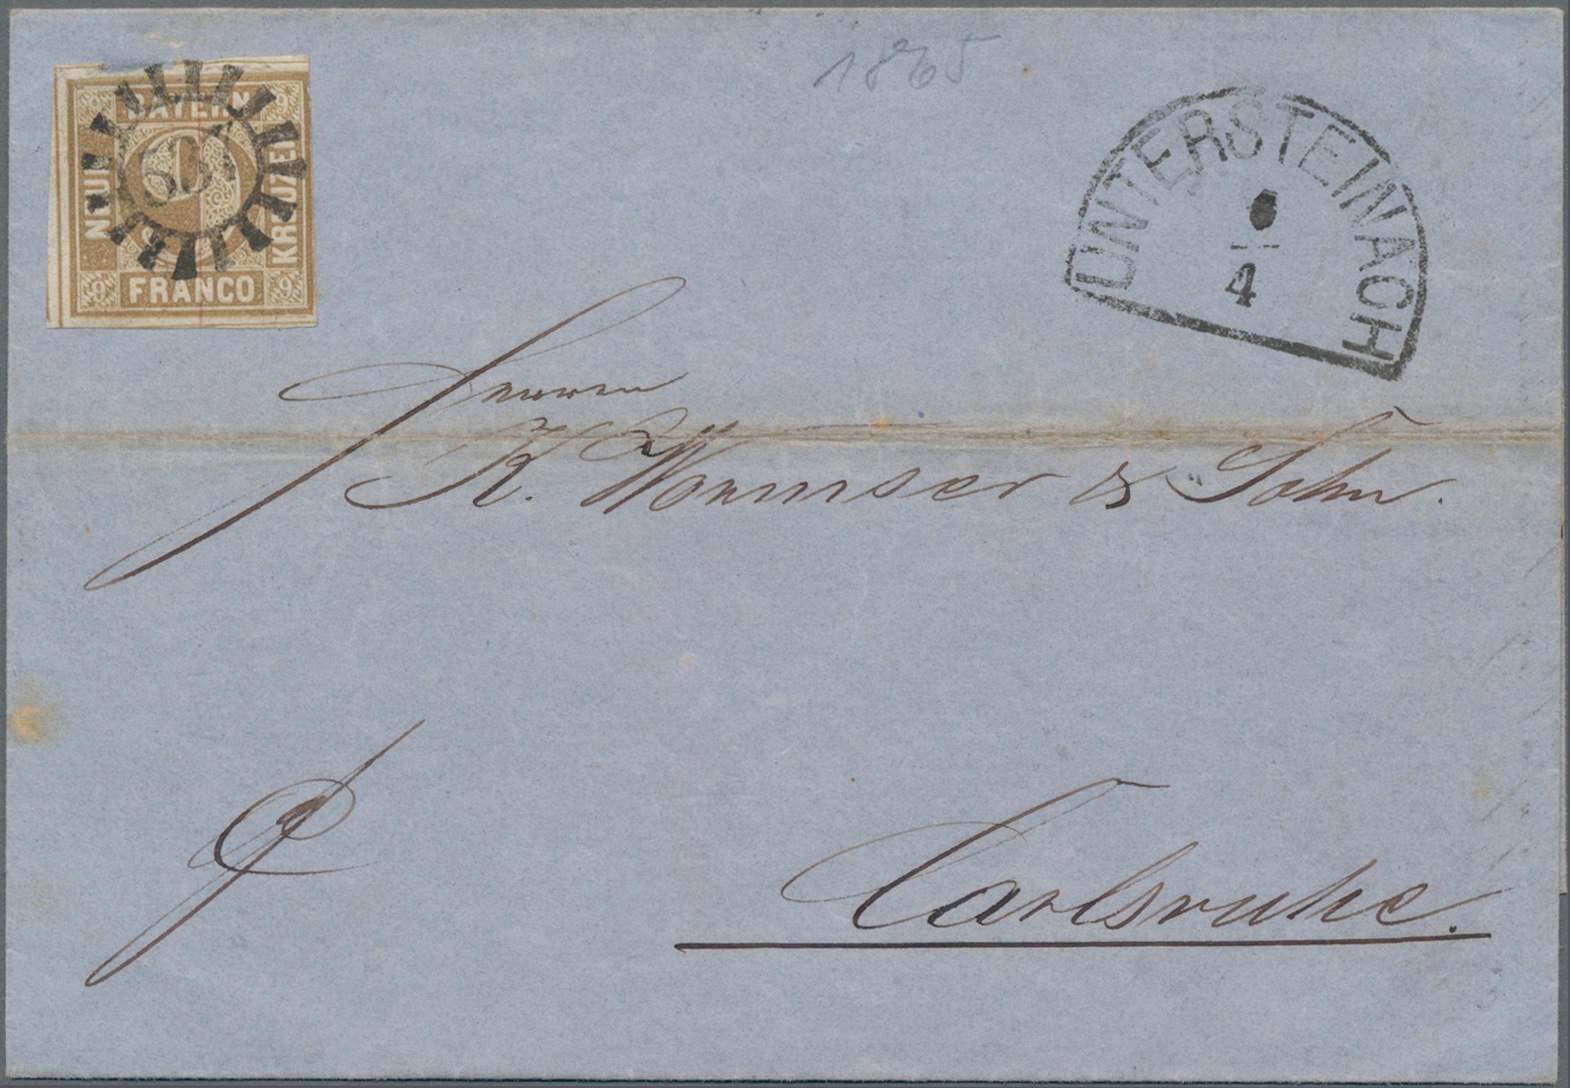 1865
9 BAYERN 9
NEUN
KREUZER
9 FRANCO 9
UNTERSTEINACH
6
4
Herren
K. Wormser & Sohn.
Carlsruhe.